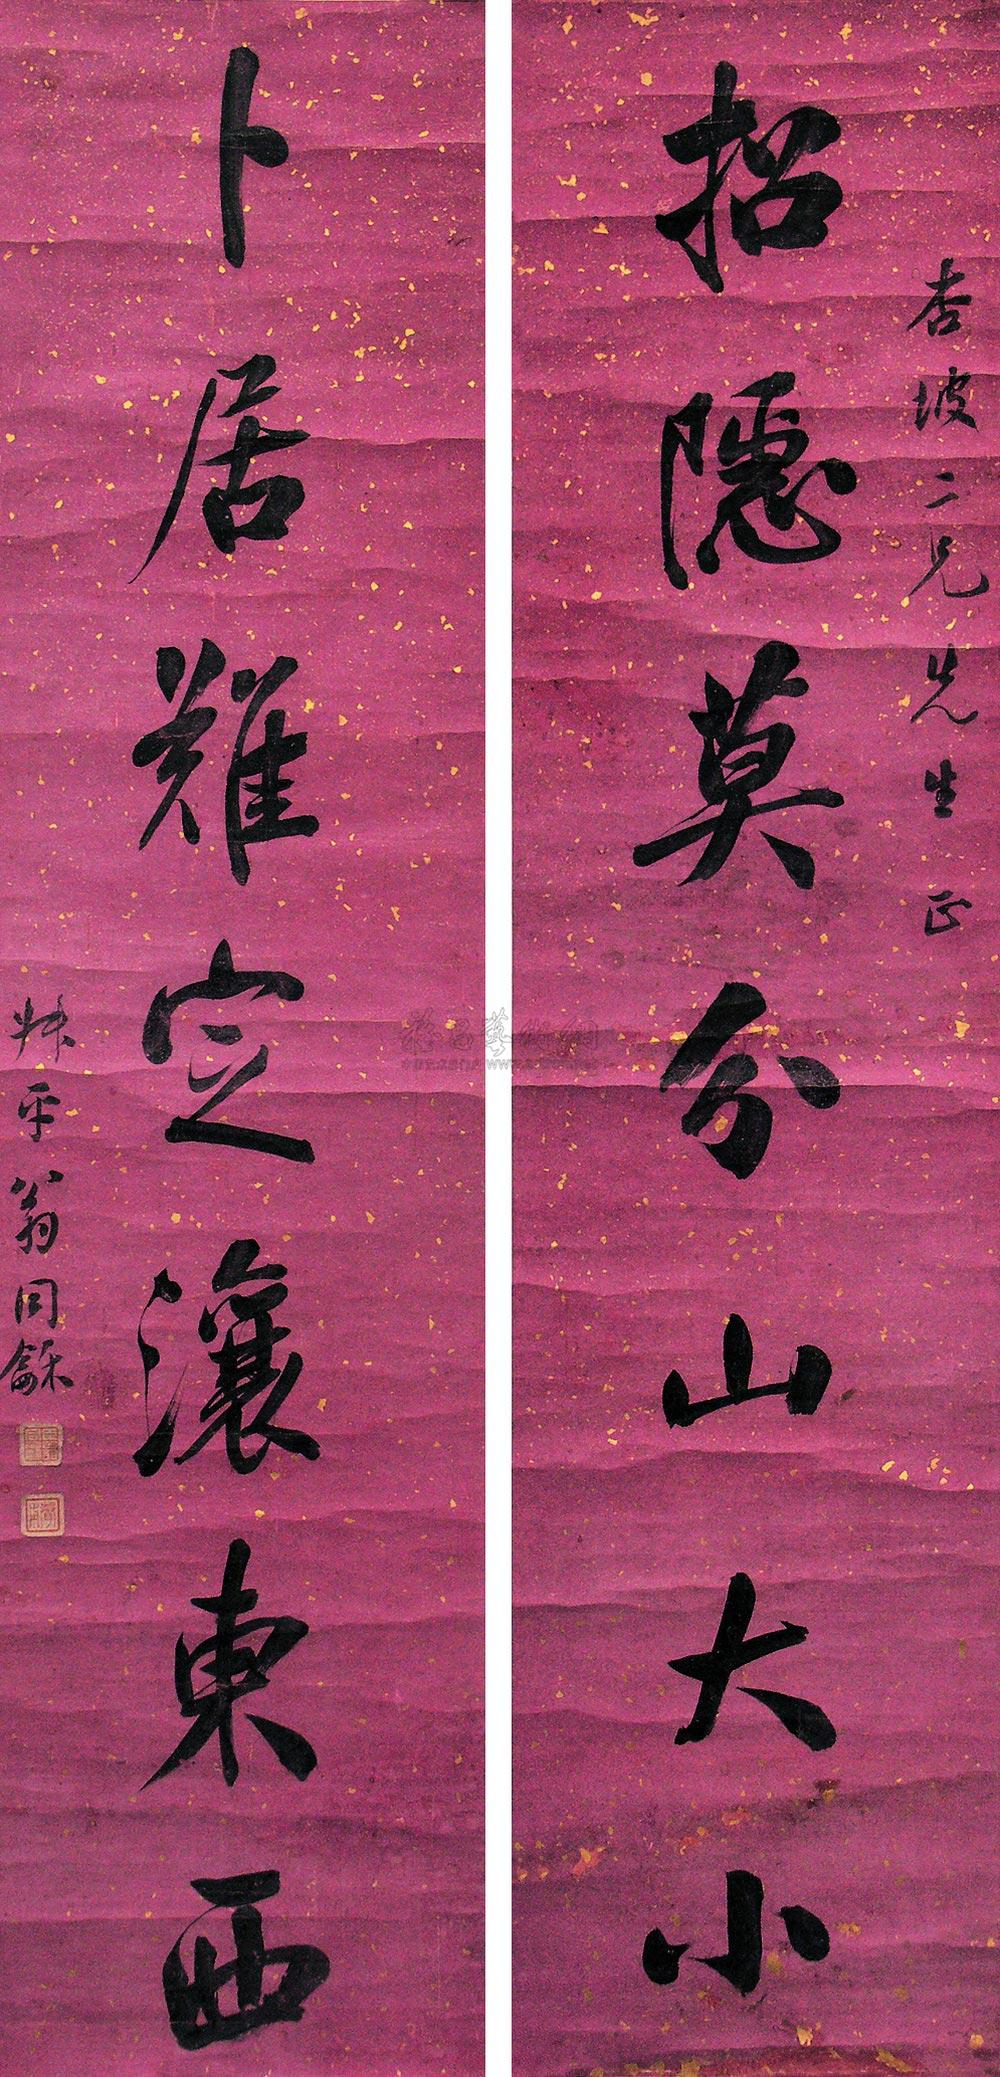 杏坡二兄先生正
招隱莫分山大小
卜居難定瀼東西
叔平翁同龢